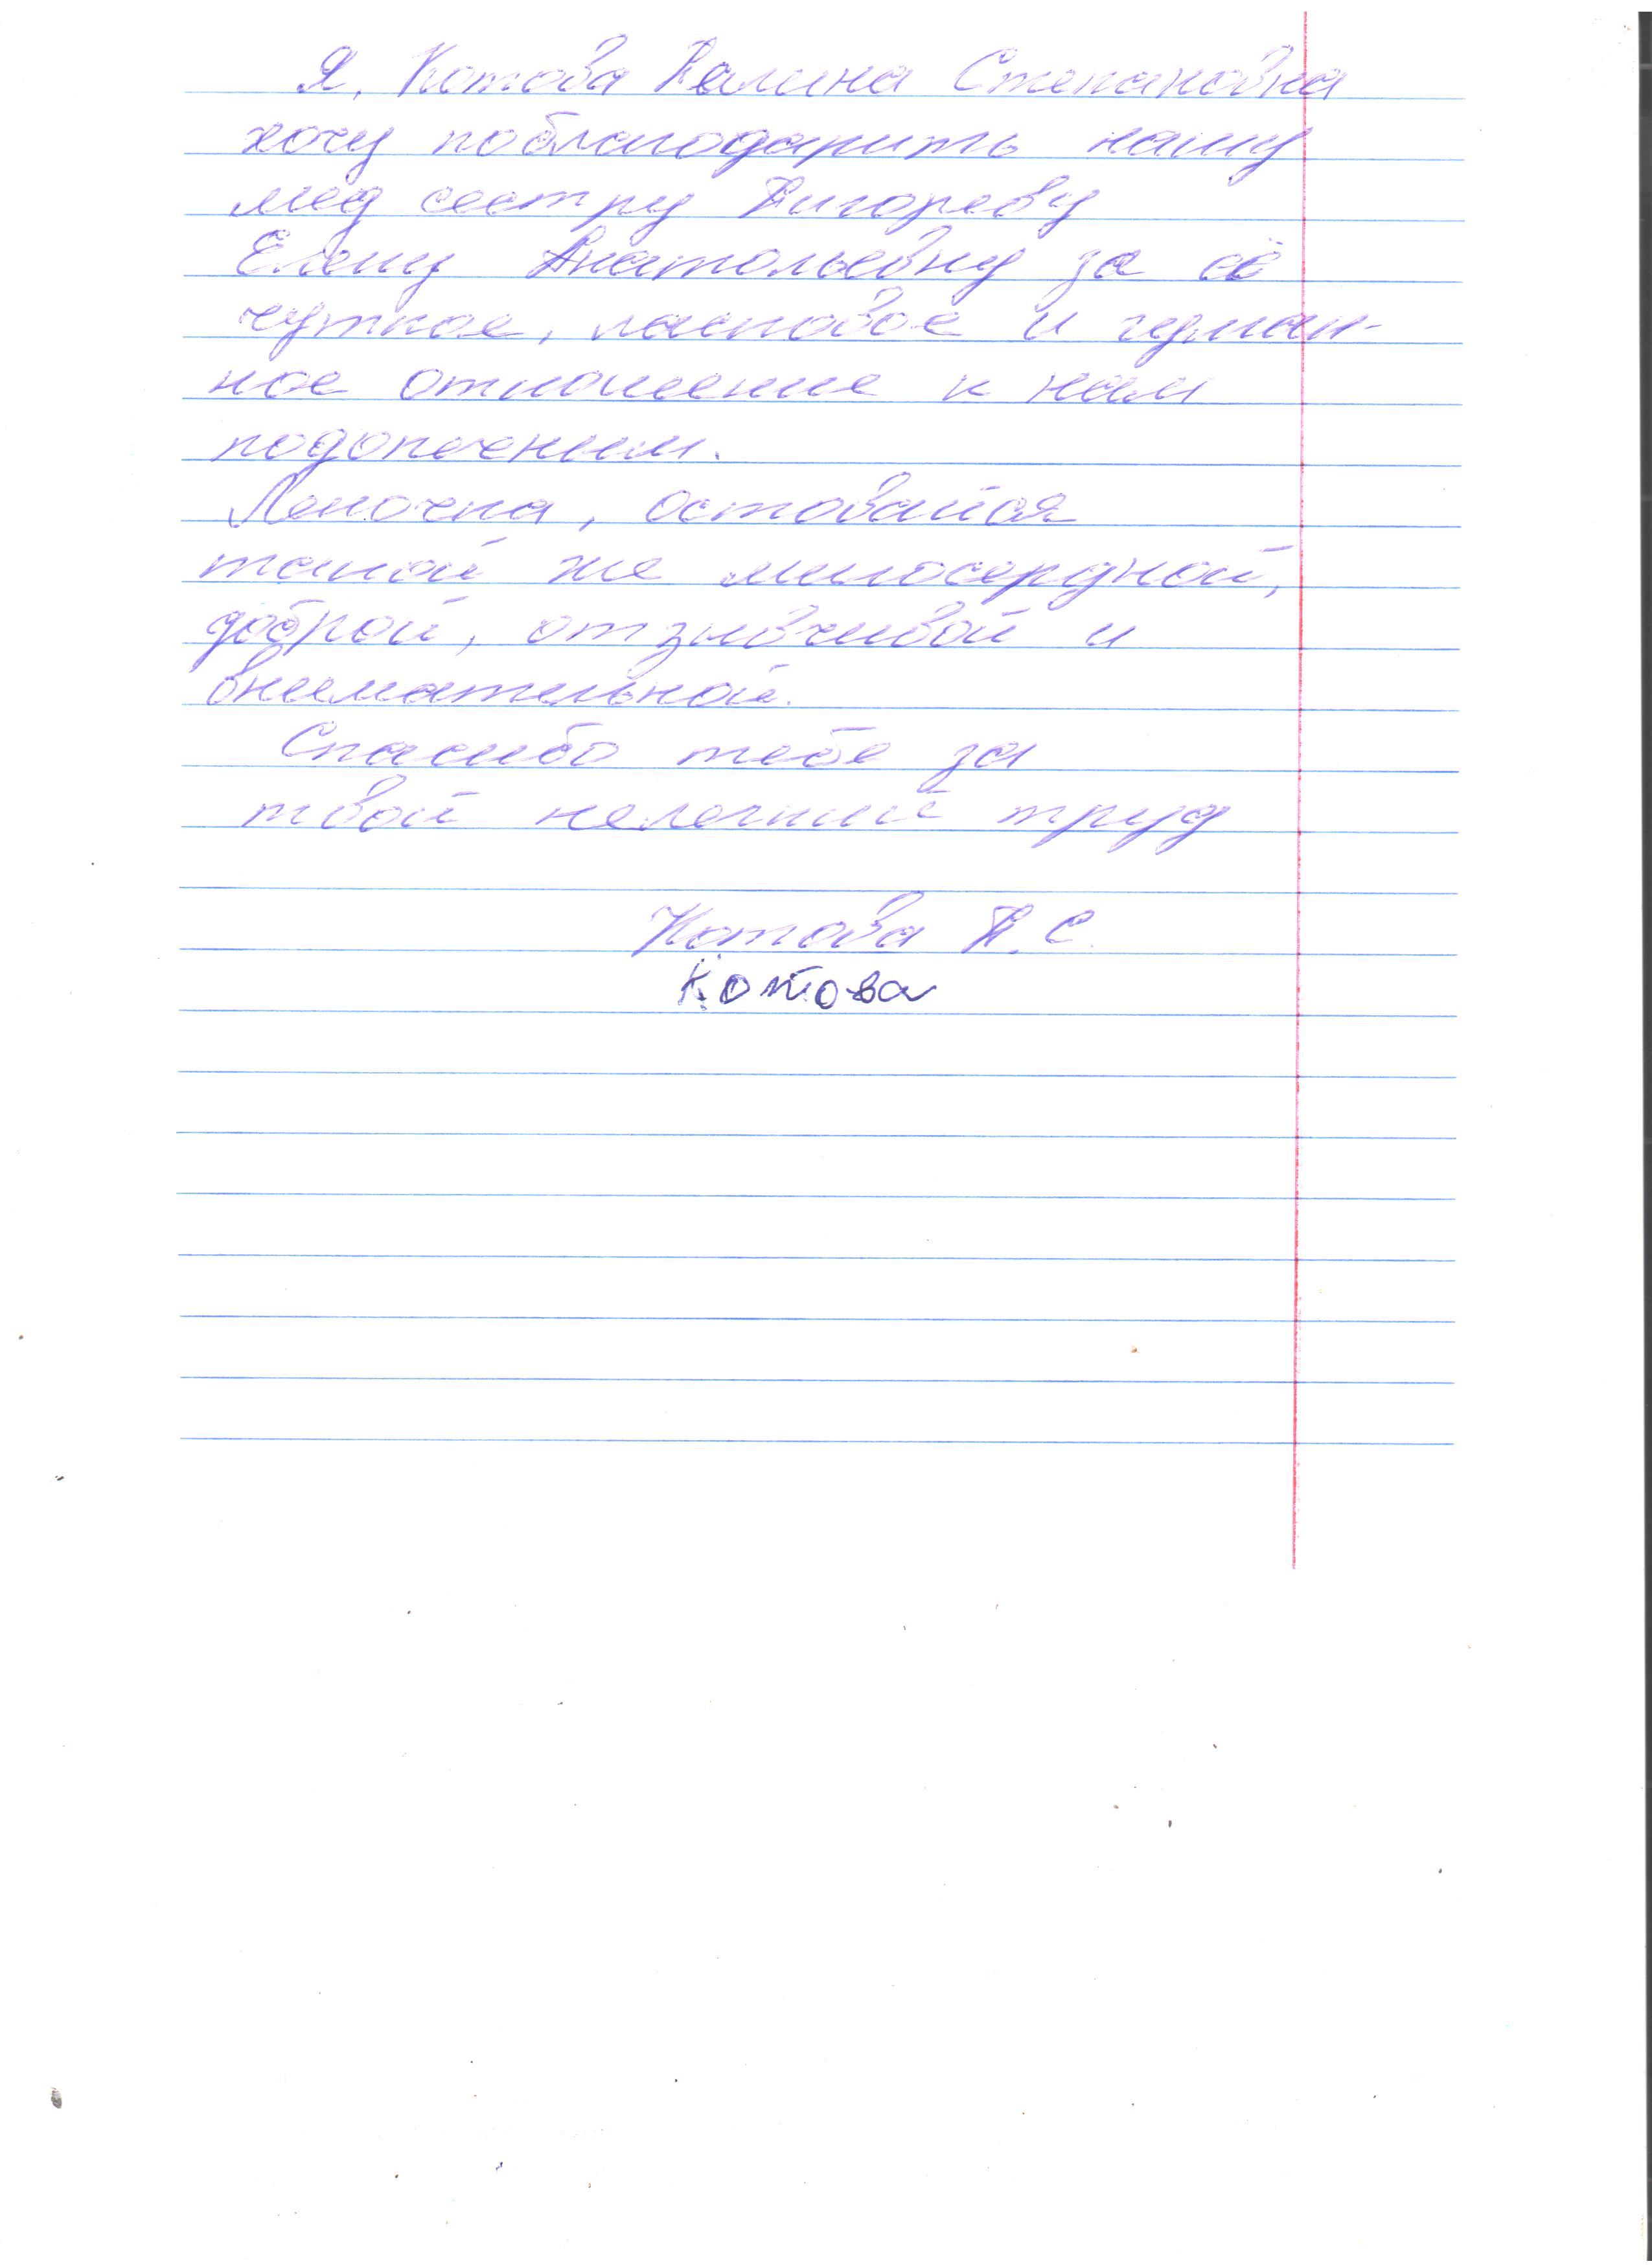 Я, Котова Галина Степановна
хочу поблагодарить нашу
мед сестру Григореву
Елену Анатольевну за её
чуткое, ласковое и гуман-
ное отношение к нам
подопечным.
Леночка, оставайся
такой же милосердной,
доброй, отзывчивой и
внимательной.
Спасибо тебе за
твой нелегкий труд
Котова Г.С.
Котова